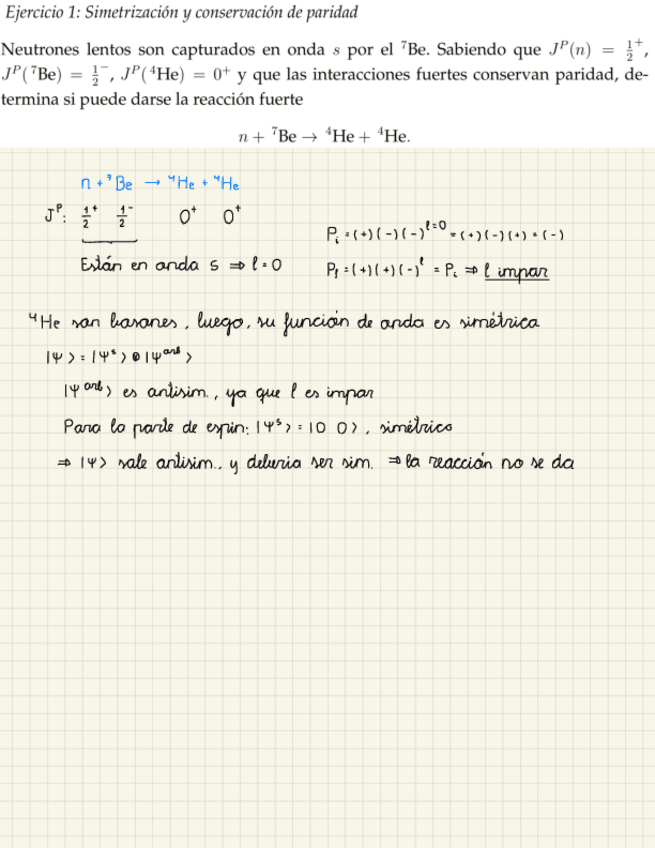 Ejercicio 1: Simetrización y conservación de paridad
Neutrones lentos son capturados en onda s por el ⁷Be. Sabiendo que J^P(n) = 1/2⁺,
J^P(⁷Be) = 1/2⁻, J^P(⁴He) = 0⁺ y que las interacciones fuertes conservan paridad, de-
termina si puede darse la reacción fuerte
n + ⁷Be → ⁴He + ⁴He.
n + ⁷Be → ⁴He + ⁴He
J^P: 1/2⁺ 1/2⁻ 0⁺ 0⁺
P_i = (+)(-)(-)^{l=0} = (+)(-)(+) = (-)
Están en onda s ⇒ l = 0
P_f = (+)(+)(-)^l = P_i ⇒ l impar
⁴He son bosones, luego, su función de onda es simétrica
|Ψ⟩ = |Ψ^s⟩ ⊗ |Ψ^{orb}⟩
|Ψ^{orb}⟩ es antisim., ya que l es impar
Para la parte de espín: |Ψ^s⟩ = |0 0⟩, simétrico
⇒ |Ψ⟩ sale antisim., y debería ser sim. ⇒ la reacción no se da